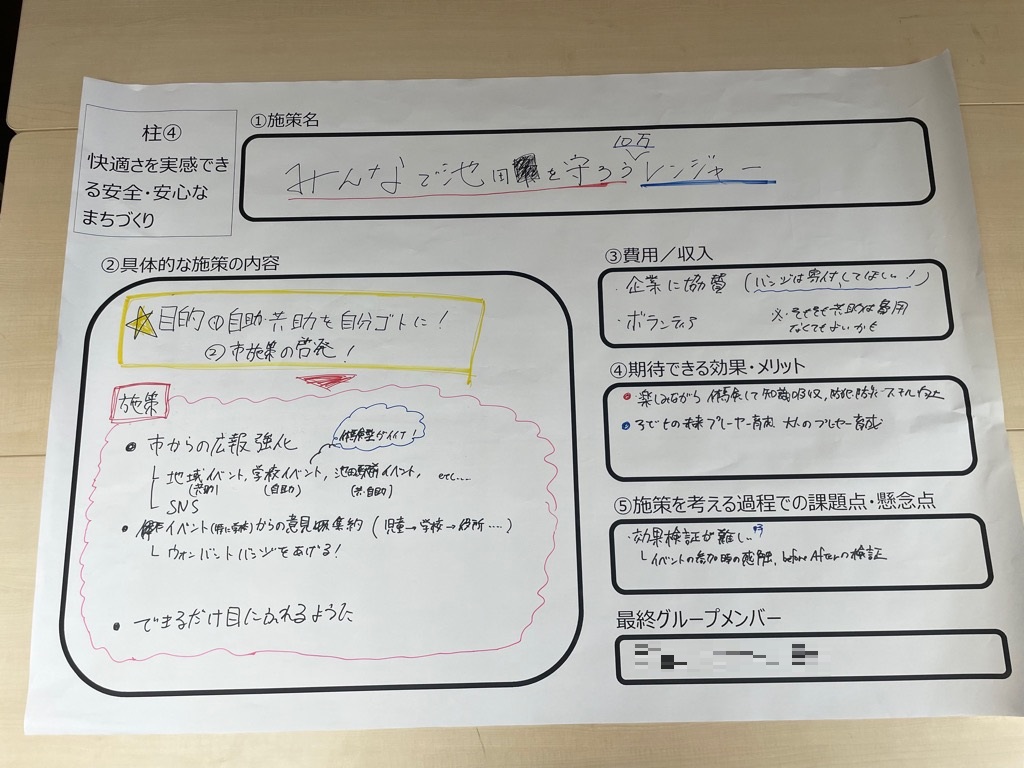 柱④
快適さを実感でき
る安全・安心な
まちづくり
①施策名
10万
みんなで池田を守ろうレンジャー
②具体的な施策の内容
目的 ①自助・共助を自分ゴトに!
②市施策の啓発!
施策
・市からの広報強化
体験型がイイ!
地域イベント, 学校イベント, 池田駅前イベント, etc....
(共助) (自助) (共・自助)
SNS
・イベント(特に学校)からの意見集約 (児童→学校→役所....)
ウォンバットバッジをあげる!
・できるだけ目にふれるように
③費用/収入
・企業に協賛 (バッジは寄付してほしい!)
・ボランティア
※そもそも共助は費用
なくてもよいかも
④期待できる効果・メリット
・楽しみながら体験して知識吸収, 防犯・防災スキル向上
・子どもの未来プレーヤー育成 大人のプレーヤー育成
⑤施策を考える過程での課題点・懸念点
・効果検証が難しい
イベントの参加時の感触, before Afterの検証
最終グループメンバー